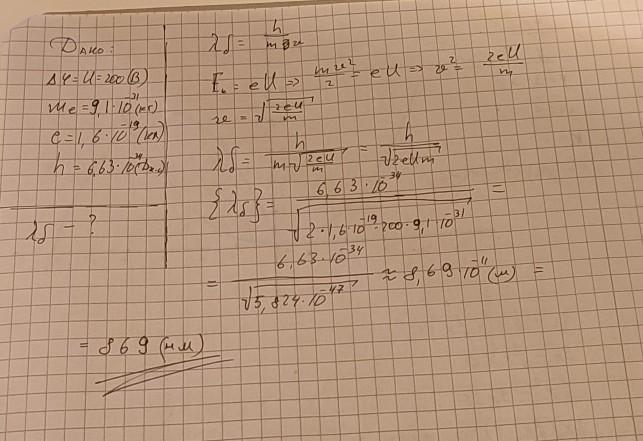 Дано:
Δφ = U = 200 (В)
me = 9,1·10⁻³¹ (кг)
e = 1,6·10⁻¹⁹ (кл)
h = 6,63·10⁻³⁴ (Дж·с)
λδ – ?
λδ = h / m v
Eк = eU => mv²/2 = eU => v² = 2eU/m
v = √(2eU/m)
λδ = h / (m√(2eU/m)) = h / √(2eUm)
{λδ} = 6,63·10⁻³⁴ / √(2·1,6·10⁻¹⁹·200·9,1·10⁻³¹) =
= 6,63·10⁻³⁴ / √(5,824·10⁻⁴⁷) ≈ 8,69·10⁻¹¹ (м) =
= 869 (нм)